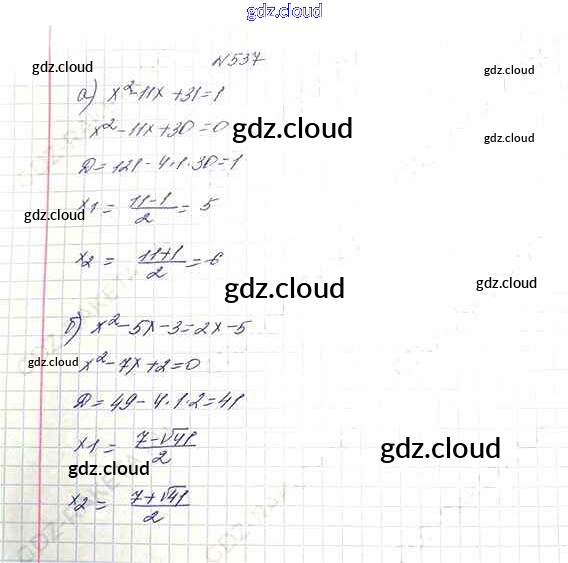 gdz.cloud
№537
gdz.cloud
gdz.cloud
а) x²-11x+31=1
gdz.cloud
x²-11x+30=0
gdz.cloud
Д=121-4·1·30=1
x1 = (11-1)/2 = 5
gdz.cloud
x2 = (11+1)/2 = 6
gdz.cloud
gdz.cloud
б) x²-5x-3=2x-5
gdz.cloud
x²-7x+2=0
Д=49-4·1·2=41
x1 = (7-√41)/2
gdz.cloud
gdz.cloud
x2 = (7+√41)/2